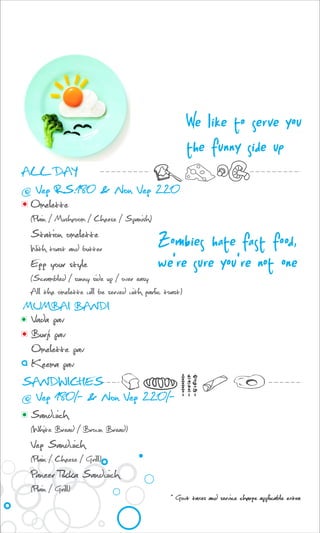 We like to serve you
the funny side up
ALL DAY
@ Veg RS.180 & Non Veg 220
Omelette
(Plain / Mushroom / Cheese / Spanish)
Station omelette
With toast and butter
Egg your style
(Scrambled / sunny side up / over easy
All the omelette will be served with garlic toast)
Zombies hate fast food,
we're sure you're not one
MUMBAI BANDI
Vada pav
Burji pav
Omelette pav
Keema pav
SANDWICHES
@ Veg 180/- & Non Veg 220/-
Sandwich
(White Bread / Brown Bread)
Veg Sandwich
(Plain / Cheese / Grill)
Paneer Tikka Sandwich
(Plain / Grill)
* Govt taxes and service charge applicable extra